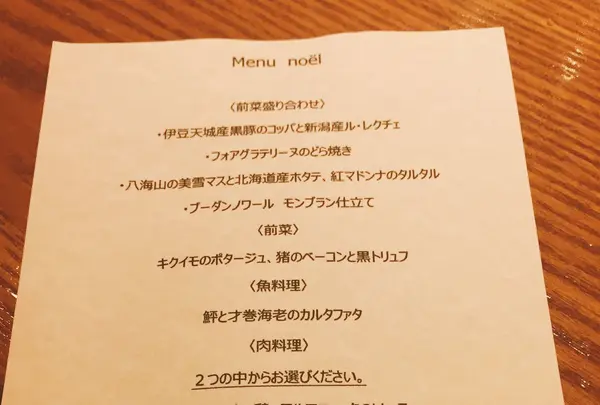 Menu noël
〈前菜盛り合わせ〉
・伊豆天城産黒豚のコッパと新潟産ル・レクチェ
・フォアグラテリーヌのどら焼き
・八海山の美雪マスと北海道産ホタテ、紅マドンナのタルタル
・ブーダンノワール モンブラン仕立て
〈前菜〉
キクイモのポタージュ、猪のベーコンと黒トリュフ
〈魚料理〉
鮃と才巻海老のカルタファタ
〈肉料理〉
２つの中からお選びください。